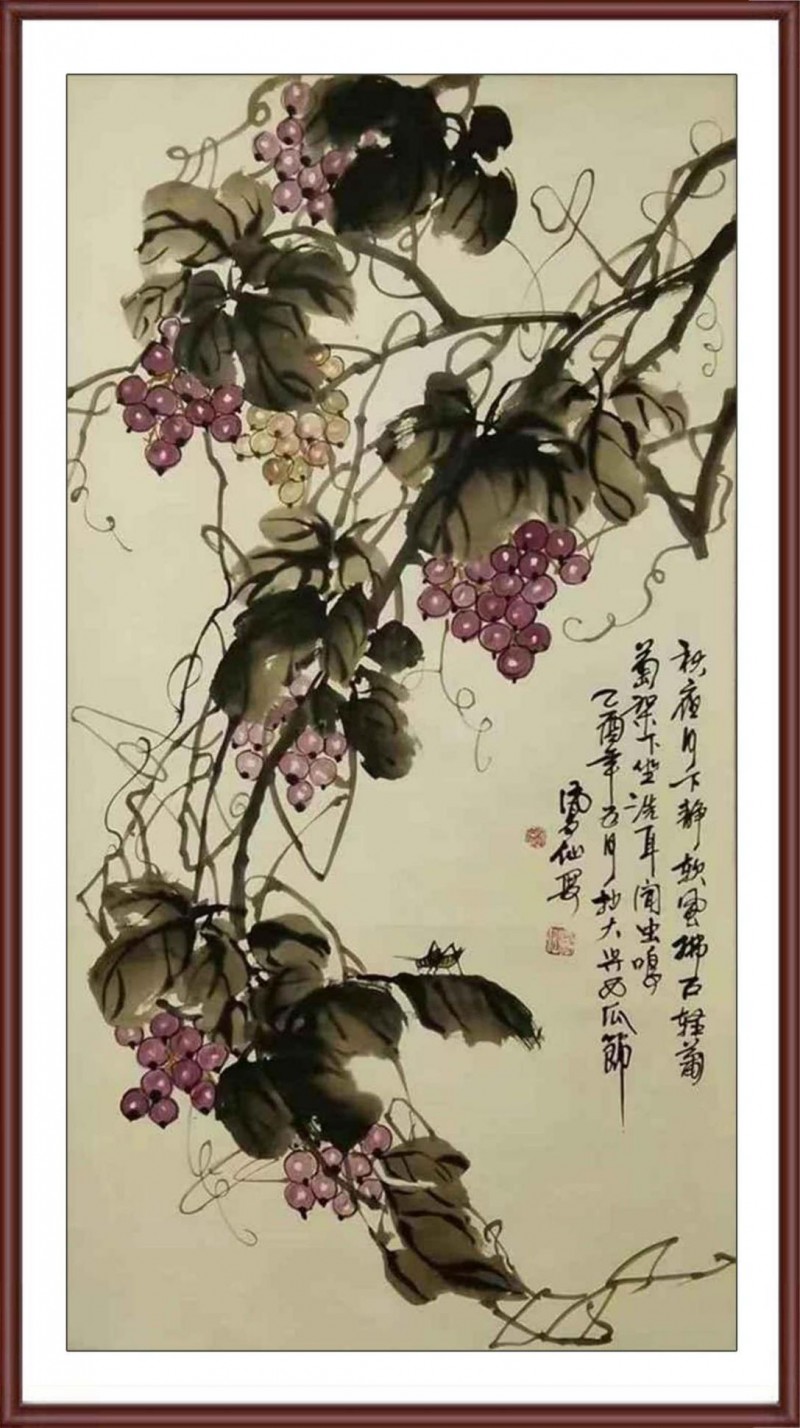 秋夜月下静软风拂面轻葡
萄架下坐洗耳闻虫鸣
乙酉年五月於大兴西瓜節
仙